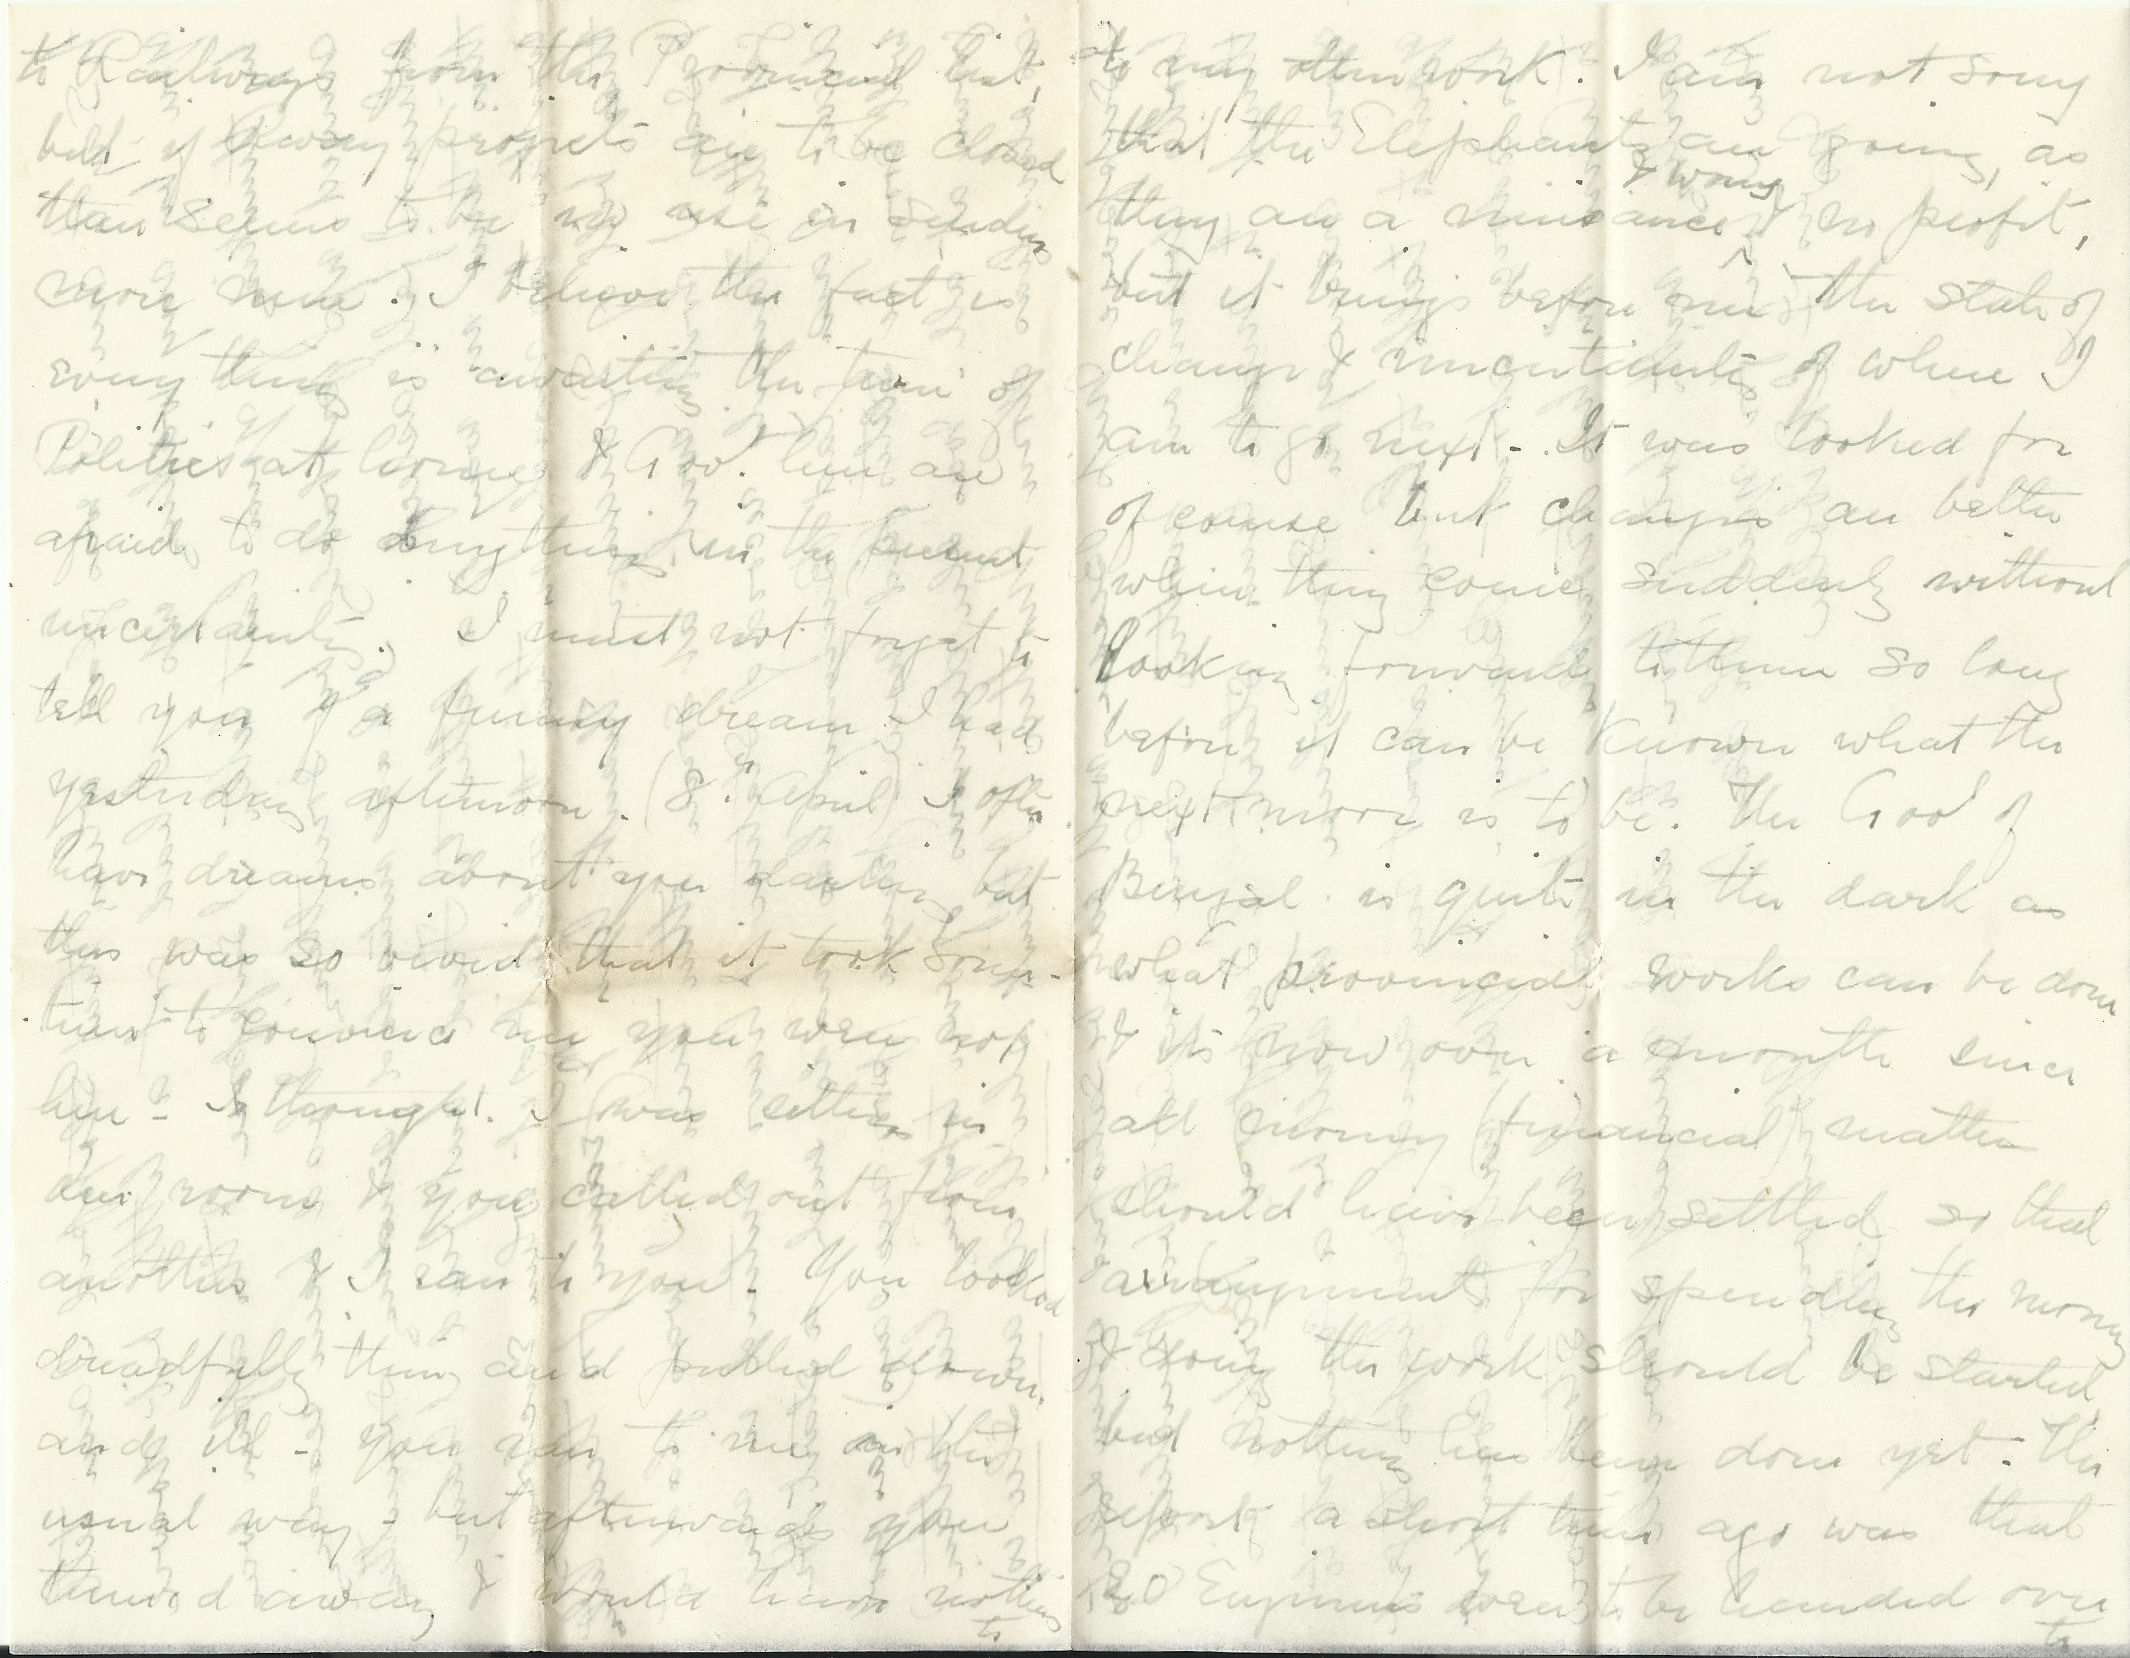 to Railways from the Provincial list,
but if Railway projects are to be closed
there seems to be no use in sending
more men. I believe the fact is
everything is awaiting the turn of
Politics at home & Gov.t here are
afraid to do anything in the present
uncertainty. I must not forget to
tell you of a funny dream I had
yesterday afternoon. (8th April) I often
have dreams about you darling but
this was so vivid that it took some
time to convince me you were not
here - I thought I was sitting in
one room & you called out from
another & I ran to you - You looked
dreadfully thin and pulled down
and ill - you ran to me in the
usual way - but afterwards you
turned away & would have nothing
to
to any other work. I am not sorry
that the Elephants are going, as
they are a nuisance & worry & no profit,
but it brings before me the state of
change & uncertainty of where I
am to go next - It was looked for
of course but changes are better
when they come suddenly without
looking forward to them so long
before it can be known what the
next move is to be. The Gov.t of
Bengal is quite in the dark as
what provincial works can be done
& its now over a month since
all money (financial) matters
should have been settled so that
arrangements for spending the money
& doing the work should be started
but nothing has been done yet. The
report a short time ago was that
20 Engineers were to be handed over
to